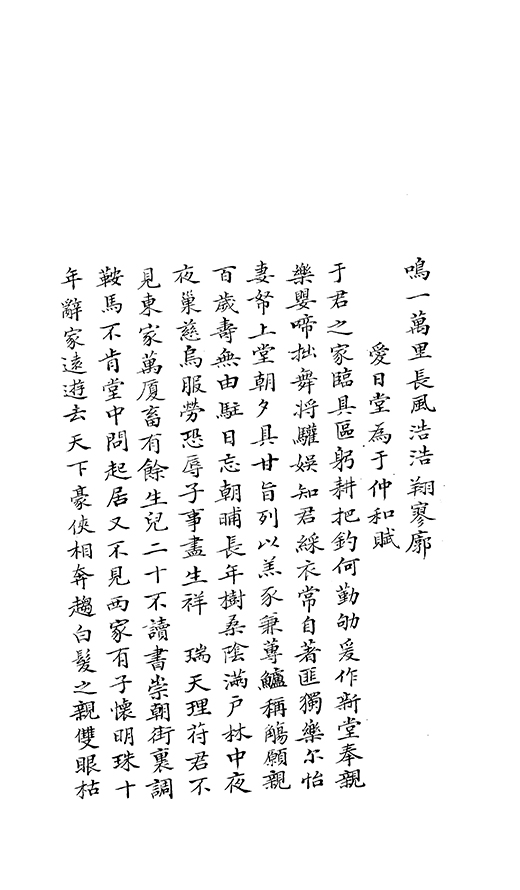 鳴一萬里長風浩浩翔寥廓
愛日堂為于仲和賦
于君之家臨具區躬耕把釣何勤劬爰作新堂奉親
樂嬰啼拙舞將驩娛知君綵衣常自著匪獨樂尓怡
妻帑上堂朝夕具甘旨列以羔豕兼尊鱸稱觴願親
百歲壽無由駐日忘朝晡長年樹桑陰滿戶林中夜
夜巢慈烏服勞恐辱子事盡生祥 瑞天理苻君不
見東家萬厦畜有餘生兒二十不讀書崇朝街裏調
鞍馬不肯堂中問起居又不見西家有子懷明珠十
年辭家遠遊去天下豪俠相奔趨白髮之親雙眼枯